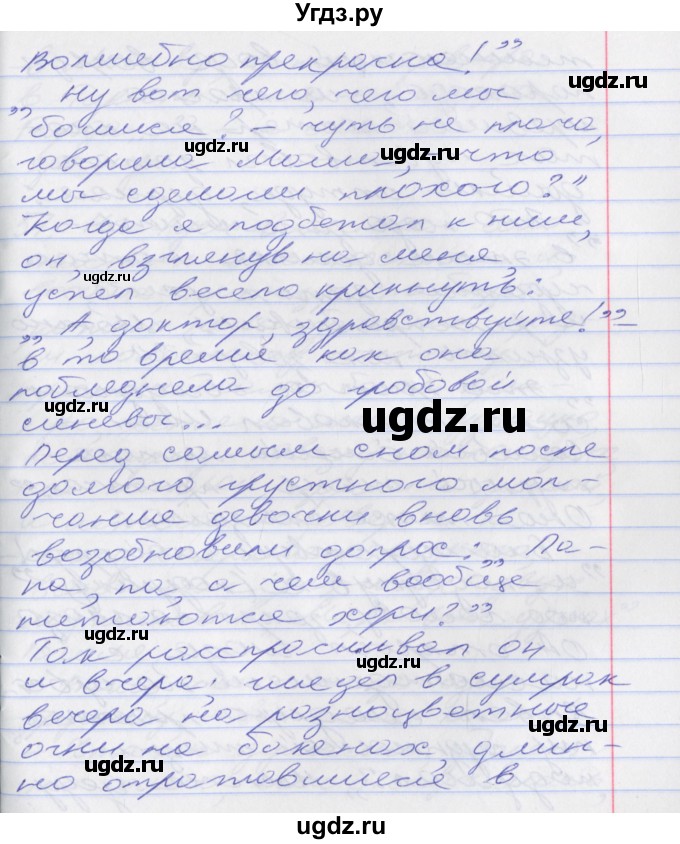 Угдз.ру
волшебно прекрасна!”
ну вот чего, чего мы
„боимся? – чуть не плача,
говорила Маша, – что
мы сделали плохого?”
Когда я подбежал к ним,
он, взглянув на меня,
успел весело крикнуть:
„А, доктор, здравствуйте!” –
в то время как она
побледнела до гробовой
синевы...
Перед самым сном после
долгого грустного мол-
чания девочки вновь
возобновили допрос: Па-
па, па, а чем вообще
питаются хори?”
Так расспрашивал он
и вчера; глядел в сумрак
вечера на разноцветные
огни на бакенах, длин-
но отражавшиеся в
ugdz.ru
ugdz.ru
ugdz.ru
ugdz.ru
ugdz.ru
ugdz.ru
ugdz.ru
ugdz.ru
ugdz.ru
ugdz.ru
ugdz.ru
ugdz.ru
ugdz.ru